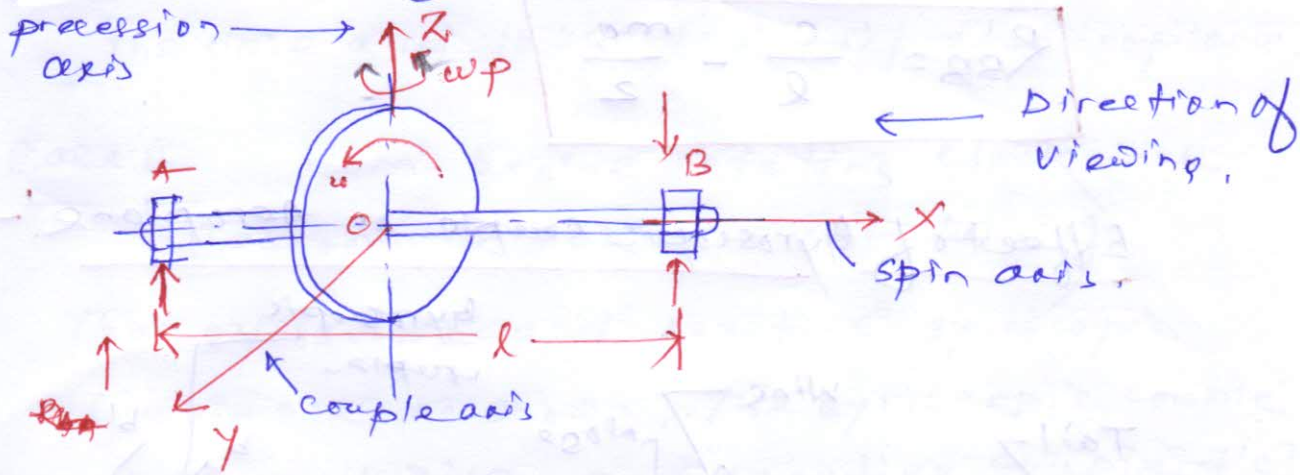 precession
axis
Z
ωp
Direction of
viewing.
A
B
O
X
spin axis.
l
couple axis
Y